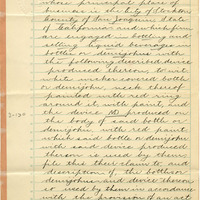 whose principal place of
business is the City of Stockton
County of San Joaquin State
of California and which firm
are engaged in bottling and
selling liquid beverages in
bottles or demijohns with
the following described device
produced thereon; to wit
white wicker covered bottle
or demijohn, neck thereof
painted with red ring
around it with paint, and
the device produced on
the body of said bottle or
demijohn with red paint
which said bottle or demijohn
with said device produced
thereon is used by them,
file this their claim to and
description of the bottles or
demijohns and device thereon
so used by them in accordance
with the provision of an act